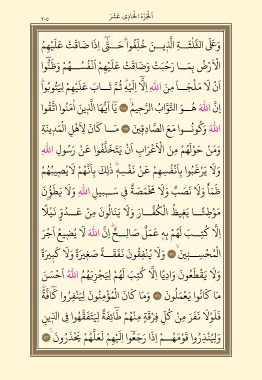 الجزء الحادي عشر ٢٠٥
وَعَلَى الثَّلٰثَةِ الَّذ۪ينَ خُلِّفُواۜ حَتّٰٓى اِذَا ضَاقَتْ عَلَيْهِمُ
الْاَرْضُ بِمَا رَحُبَتْ وَضَاقَتْ عَلَيْهِمْ اَنْفُسُهُمْ وَظَنُّٓوا
اَنْ لَا مَلْجَاَ مِنَ اللّٰهِ اِلَّٓا اِلَيْهِۜ ثُمَّ تَابَ عَلَيْهِمْ لِيَتُوبُواۜ
اِنَّ اللّٰهَ هُوَ التَّوَّابُ الرَّح۪يمُ ۟ يَٓا اَيُّهَا الَّذ۪ينَ اٰمَنُوا اتَّقُوا
اللّٰهَ وَكُونُوا مَعَ الصَّادِق۪ينَ مَا كَانَ لِاَهْلِ الْمَد۪ينَةِ
وَمَنْ حَوْلَهُمْ مِنَ الْاَعْرَابِ اَنْ يَتَخَلَّفُوا عَنْ رَسُولِ اللّٰهِ
وَلَا يَرْغَبُوا بِاَنْفُسِهِمْ عَنْ نَفْسِه۪ۜ ذٰلِكَ بِاَنَّهُمْ لَا يُص۪يبُهُمْ
ظَمَاٌ وَلَا نَصَبٌ وَلَا مَخْمَصَةٌ ف۪ي سَب۪يلِ اللّٰهِ وَلَا يَطَؤُ۫نَ
مَوْطِئًا يَغ۪يظُ الْكُفَّارَ وَلَا يَنَالُونَ مِنْ عَدُوٍّ نَيْلًا
اِلَّا كُتِبَ لَهُمْ بِه۪ عَمَلٌ صَالِحٌۜ اِنَّ اللّٰهَ لَا يُض۪يعُ اَجْرَ
الْمُحْسِن۪ينَۙ وَلَا يُنْفِقُونَ نَفَقَةً صَغ۪يرَةً وَلَا كَب۪يرَةً
وَلَا يَقْطَعُونَ وَادِيًا اِلَّا كُتِبَ لَهُمْ لِيَجْزِيَهُمُ اللّٰهُ اَحْسَنَ
مَا كَانُوا يَعْمَلُونَ وَمَا كَانَ الْمُؤْمِنُونَ لِيَنْفِرُوا كَٓافَّةًۜ
فَلَوْلَا نَفَرَ مِنْ كُلِّ فِرْقَةٍ مِنْهُمْ طَٓائِفَةٌ لِيَتَفَقَّهُوا فِي الدّ۪ينِ
وَلِيُنْذِرُوا قَوْمَهُمْ اِذَا رَجَعُٓوا اِلَيْهِمْ لَعَلَّهُمْ يَحْذَرُونَ۟